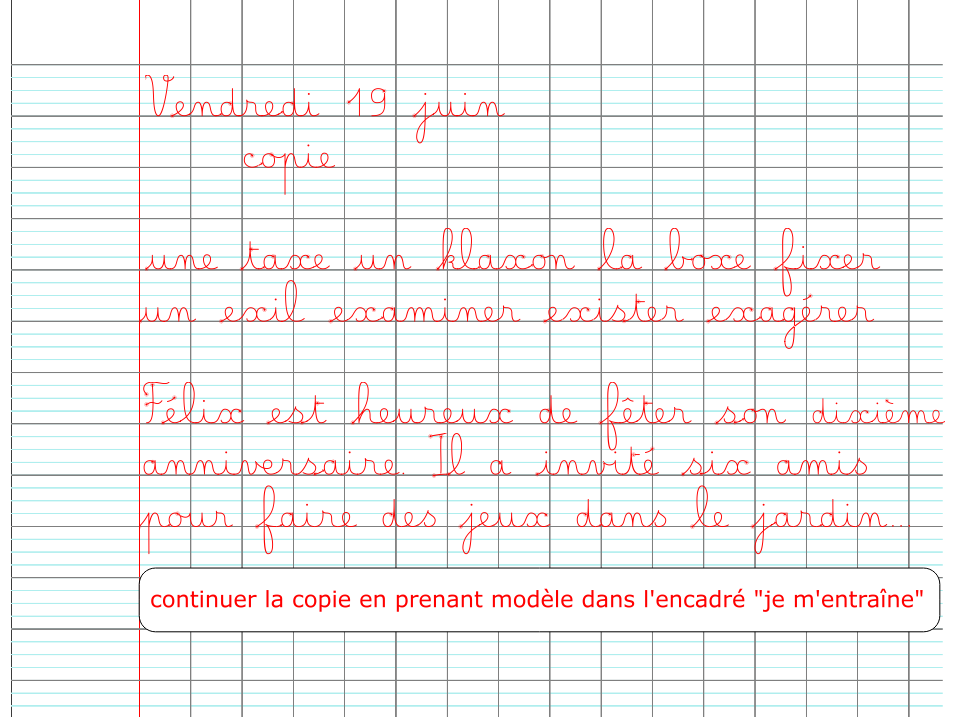 Vendredi 19 juin
copie
une taxe un klaxon la boxe fixer
un exil examiner exister exagérer
Félix est heureux de fêter son dixième
anniversaire. Il a invité six amis
pour faire des jeux dans le jardin...
continuer la copie en prenant modèle dans l'encadré "je m'entraîne"